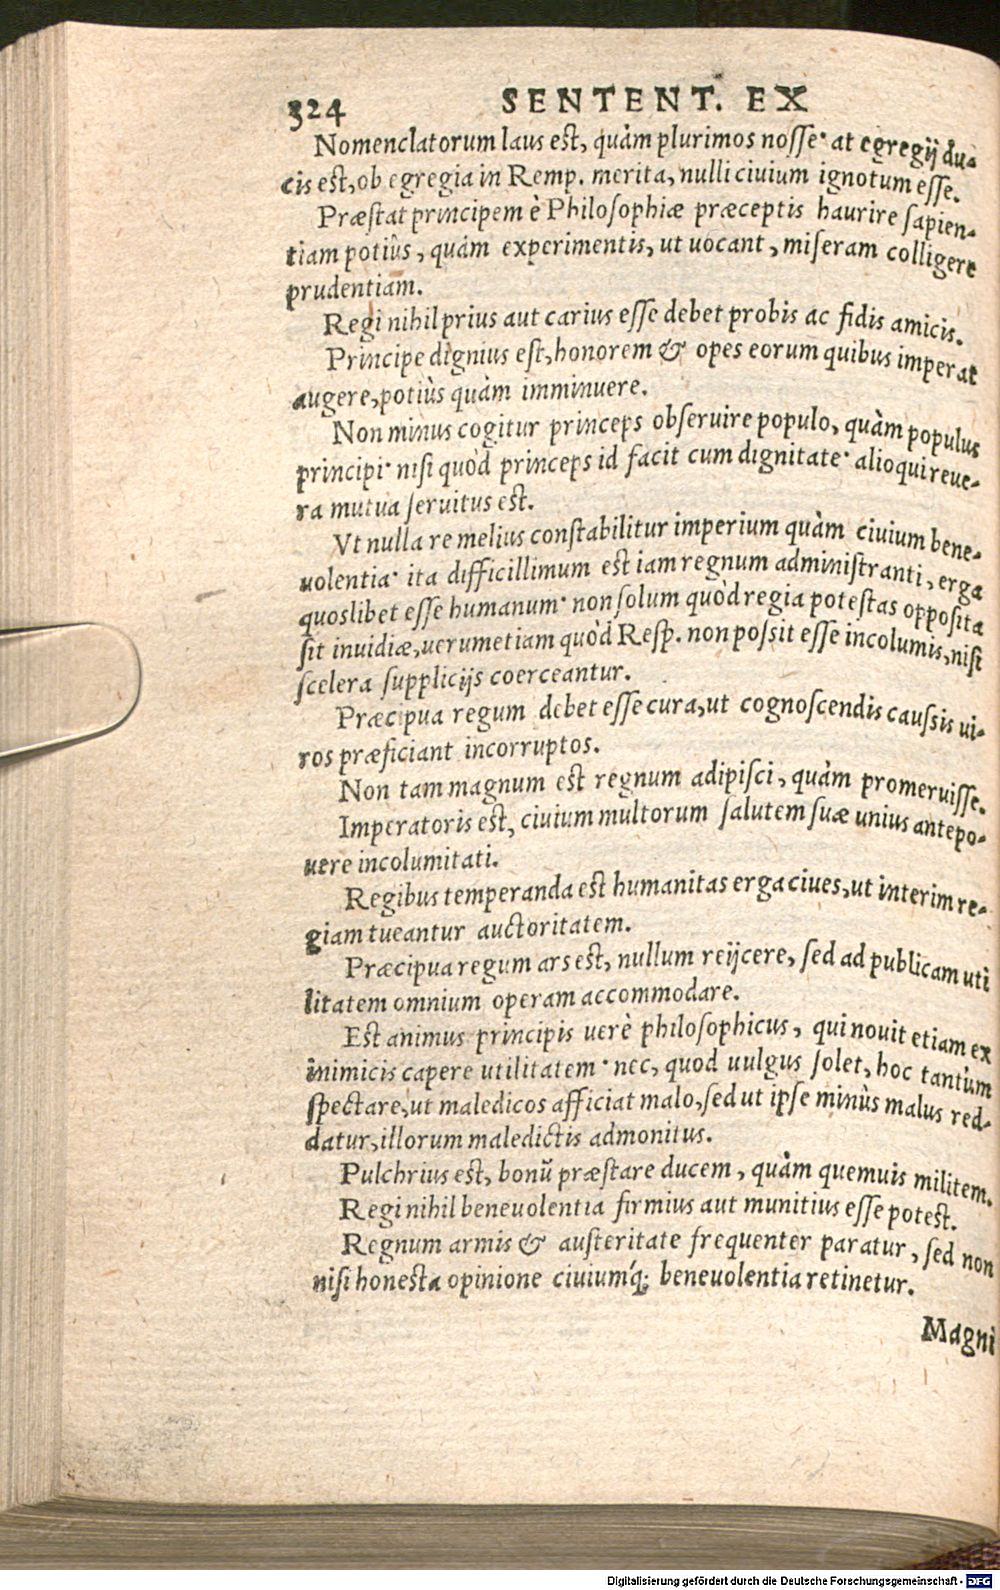 324 SENTENT. EX
Nomenclatorum laus est, quàm plurimos nosse· at egregij du-
cis est, ob egregia in Remp. merita, nulli ciuium ignotum esse.
Præstat principem è Philosophiæ præceptis haurire sapien-
tiam potiùs, quàm experimentis, ut uocant, miseram colligere
prudentiam.
Regi nihil prius aut carius esse debet probis ac fidis amicis.
Principe dignius est, honorem & opes eorum quibus imperat
augere, potiùs quàm imminuere.
Non minus cogitur princeps obseruire populo, quàm populus
principi· nisi quòd princeps id facit cum dignitate· alioqui reue-
ra mutua seruitus est.
Vt nulla re melius constabilitur imperium quàm ciuium bene-
uolentia· ita difficillimum est iam regnum administranti, erga
quoslibet esse humanum· non solum quòd regia potestas opposita
sit inuidiæ, uerumetiam quòd Resp. non possit esse incolumis, nisi
scelera supplicijs coerceantur.
Præcipua regum debet esse cura, ut cognoscendis caussis ui-
ros præficiant incorruptos.
Non tam magnum est regnum adipisci, quàm promeruisse.
Imperatoris est, ciuium multorum salutem suæ unius antepo-
uere incolumitati.
Regibus temperanda est humanitas erga ciues, ut interim re-
giam tueantur auctoritatem.
Præcipua regum ars est, nullum reijcere, sed ad publicam uti
litatem omnium operam accommodare.
Est animus principis uerè philosophicus, qui nouit etiam ex
inimicis capere utilitatem· nec, quod uulgus solet, hoc tantùm
spectare, ut maledicos afficiat malo, sed ut ipse minùs malus red-
datur, illorum maledictis admonitus.
Pulchrius est, bonũ præstare ducem, quàm quemuis militem.
Regi nihil beneuolentia firmius aut munitius esse potest.
Regnum armis & austeritate frequenter paratur, sed non
nisi honesta opinione ciuiumq́; beneuolentia retinetur.
Magni
Digitalisierung gefördert durch die Deutsche Forschungsgemeinschaft - DFG